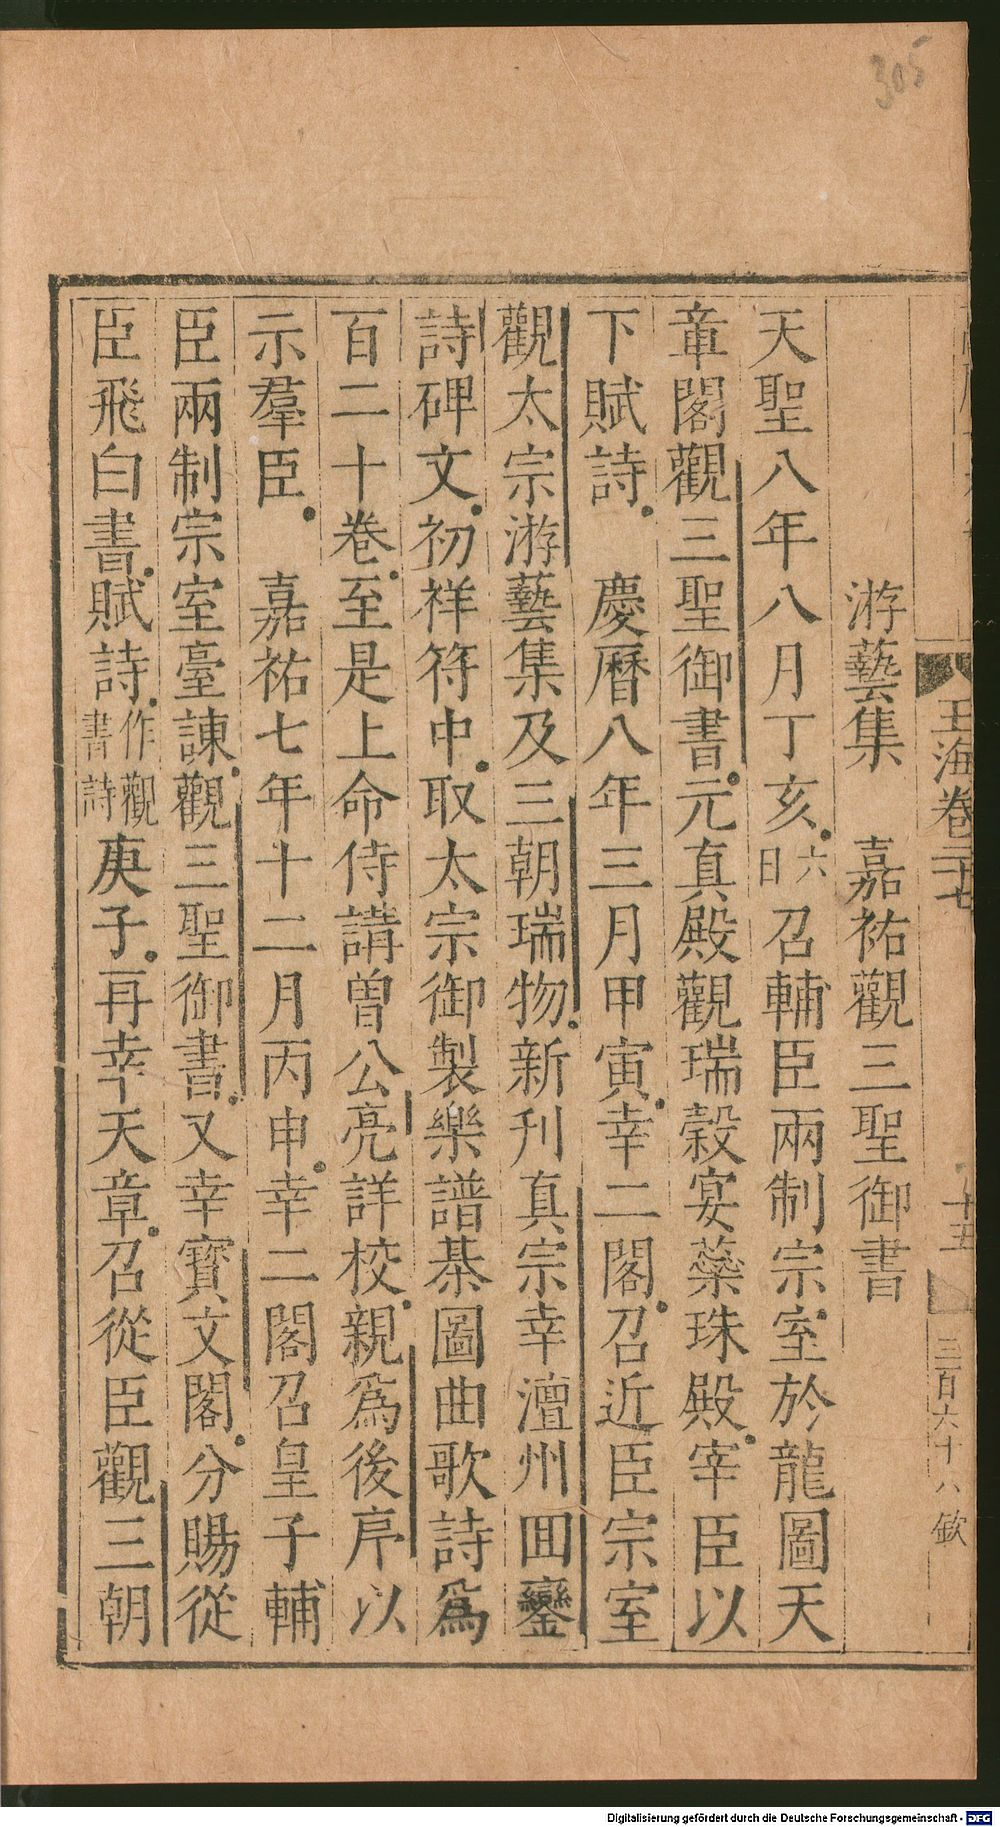 305
玉海卷二十七
十五
三百六十八
游藝集　嘉祐觀三聖御書
天聖八年八月丁亥六日召輔臣兩制宗室於龍圖天
章閣觀三聖御書元真殿觀瑞穀宴蘂珠殿宰臣以
下賦詩　慶曆八年三月甲寅幸二閣召近臣宗室
觀太宗游藝集及三朝瑞物新刊真宗幸澶州囬鑾
詩碑文初祥符中取太宗御製樂譜棊圖曲歌詩爲
百二十卷至是上命侍講曽公亮詳校親爲後序以
示羣臣　嘉祐七年十二月丙申幸二閣召皇子輔
臣兩制宗室臺諫觀三聖御書又幸寳文閣分賜從
臣飛白書賦詩作觀書詩庚子再幸天章召從臣觀三朝
Digitalisierung gefördert durch die Deutsche Forschungsgemeinschaft - DFG